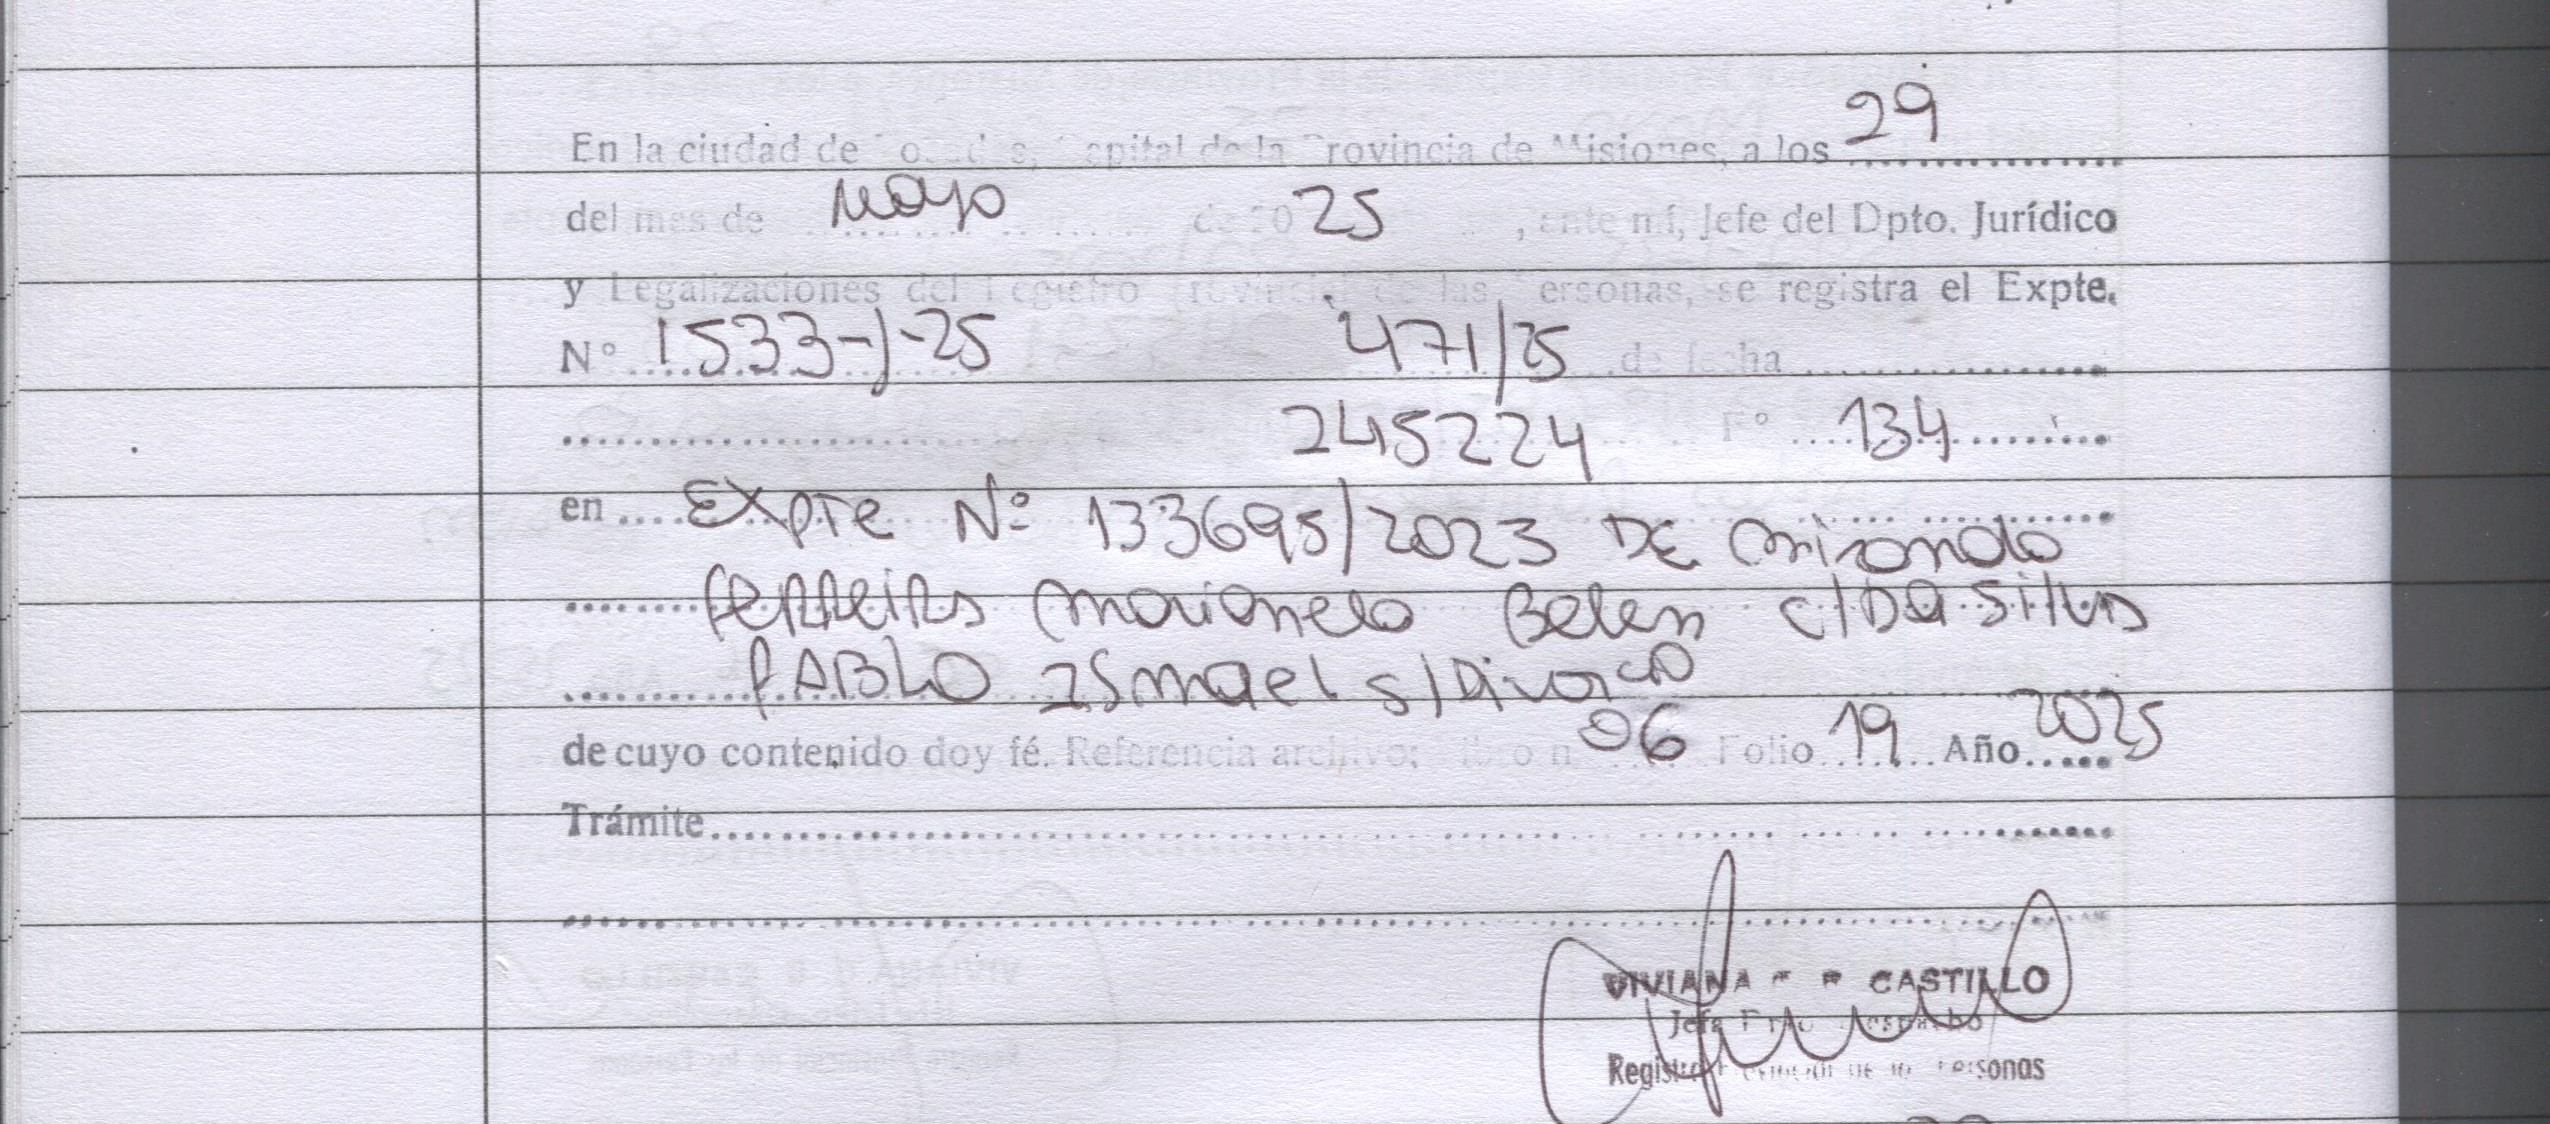 En la ciudad de Posadas, Capital de la Provincia de Misiones, a los 29
del mes de mayo de 20 25, ante mí, Jefe del Dpto. Jurídico
y Legalizaciones del Registro Provincial de las Personas, se registra el Expte.
Nº 1533-J-25 471/25 de fecha
245224 Fº 134
en Expte Nº 133695/2023 DE Miranda
Ferreira Marianela Belen c/Da Silva
PABLO ISmael s/Divorcio
de cuyo contenido doy fé. Referencia archivo: Libro n 06 Folio 19 Año 2025
Trámite
VIVIANA CASTILLO
Jefa Dpto Despacho
Registro Provincial de las Personas